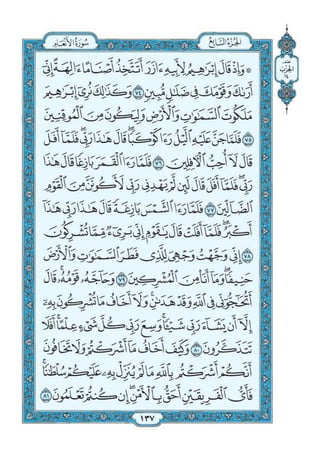 الجُزءُ السَّابِعُ سُورَةُ الأَنْعَامِ
۞ وَإِذْ قَالَ إِبْرَٰهِيمُ لِأَبِيهِ ءَازَرَ أَتَتَّخِذُ أَصْنَامًا ءَالِهَةً إِنِّىٓ
أَرَىٰكَ وَقَوْمَكَ فِى ضَلَٰلٍ مُّبِينٍ ٧٤ وَكَذَٰلِكَ نُرِىٓ إِبْرَٰهِيمَ
مَلَكُوتَ ٱلسَّمَٰوَٰتِ وَٱلْأَرْضِ وَلِيَكُونَ مِنَ ٱلْمُوقِنِينَ
٧٥ فَلَمَّا جَنَّ عَلَيْهِ ٱلَّيْلُ رَءَا كَوْكَبًا قَالَ هَٰذَا رَبِّى فَلَمَّآ أَفَلَ
قَالَ لَآ أُحِبُّ ٱلْءَافِلِينَ ٧٦ فَلَمَّا رَءَا ٱلْقَمَرَ بَازِغًا قَالَ هَٰذَا
رَبِّى فَلَمَّآ أَفَلَ قَالَ لَئِن لَّمْ يَهْدِنِى رَبِّى لَأَكُونَنَّ مِنَ ٱلْقَوْمِ
ٱلضَّآلِّينَ ٧٧ فَلَمَّا رَءَا ٱلشَّمْسَ بَازِغَةً قَالَ هَٰذَا رَبِّى هَٰذَآ
أَكْبَرُ فَلَمَّآ أَفَلَتْ قَالَ يَٰقَوْمِ إِنِّى بَرِىٓءٌ مِّمَّا تُشْرِكُونَ
٧٨ إِنِّى وَجَّهْتُ وَجْهِىَ لِلَّذِى فَطَرَ ٱلسَّمَٰوَٰتِ وَٱلْأَرْضَ
حَنِيفًا وَمَآ أَنَا۠ مِنَ ٱلْمُشْرِكِينَ ٧٩ وَحَآجَّهُۥ قَوْمُهُۥ قَالَ
أَتُحَٰٓجُّوٓنِّى فِى ٱللَّهِ وَقَدْ هَدَىٰنِ وَلَآ أَخَافُ مَا تُشْرِكُونَ بِهِۦٓ
إِلَّآ أَن يَشَآءَ رَبِّى شَيْـًٔا وَسِعَ رَبِّى كُلَّ شَىْءٍ عِلْمًا أَفَلَا
تَتَذَكَّرُونَ ٨٠ وَكَيْفَ أَخَافُ مَآ أَشْرَكْتُمْ وَلَا تَخَافُونَ
أَنَّكُمْ أَشْرَكْتُم بِٱللَّهِ مَا لَمْ يُنَزِّلْ بِهِۦ عَلَيْكُمْ سُلْطَٰنًا
فَأَىُّ ٱلْفَرِيقَيْنِ أَحَقُّ بِٱلْأَمْنِ إِن كُنتُمْ تَعْلَمُونَ ٨١
١٣٧